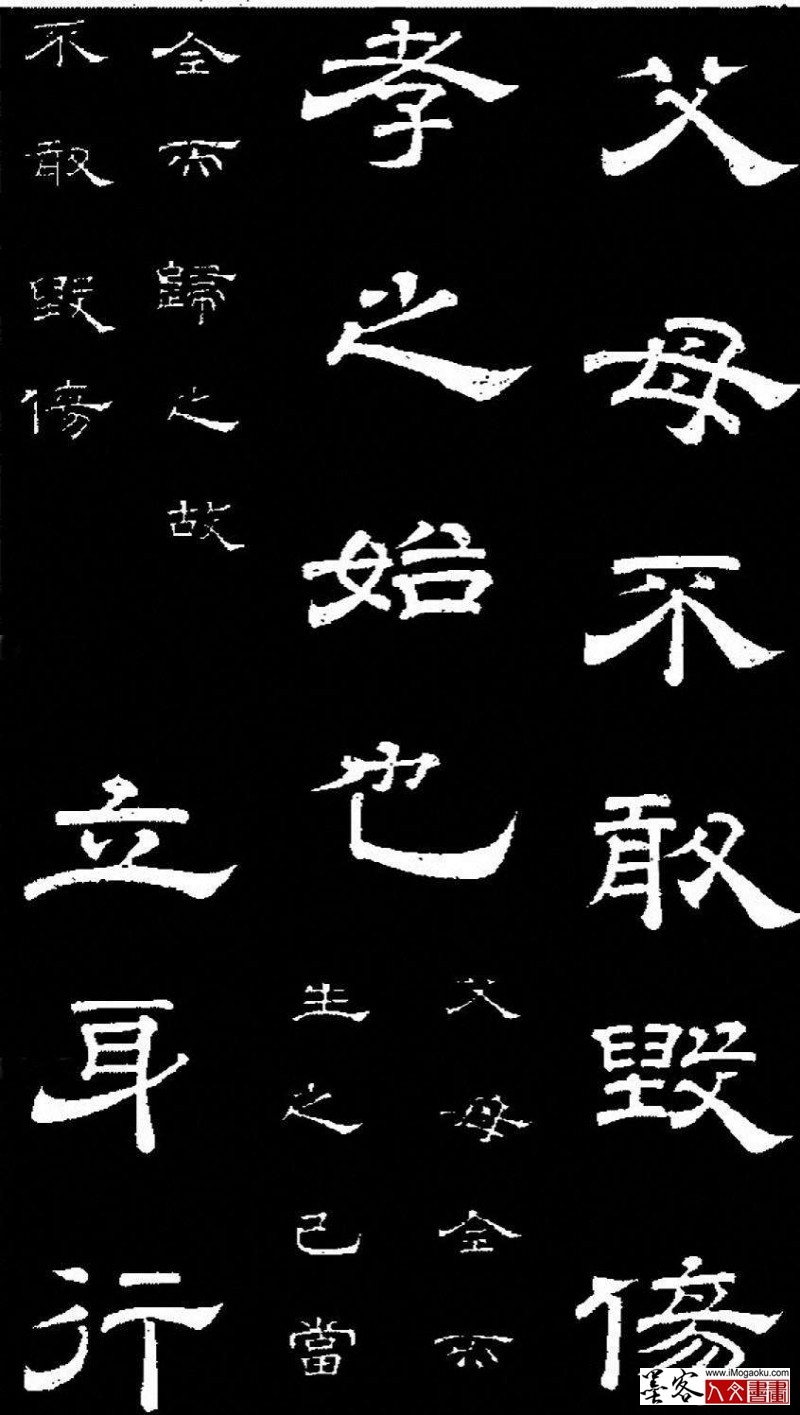 父母不敢毀傷
孝之始也
父母全而
生之己當
全而歸之故
不敢毀傷
立身行
墨客
www.iMogaoku.com
人文書畫